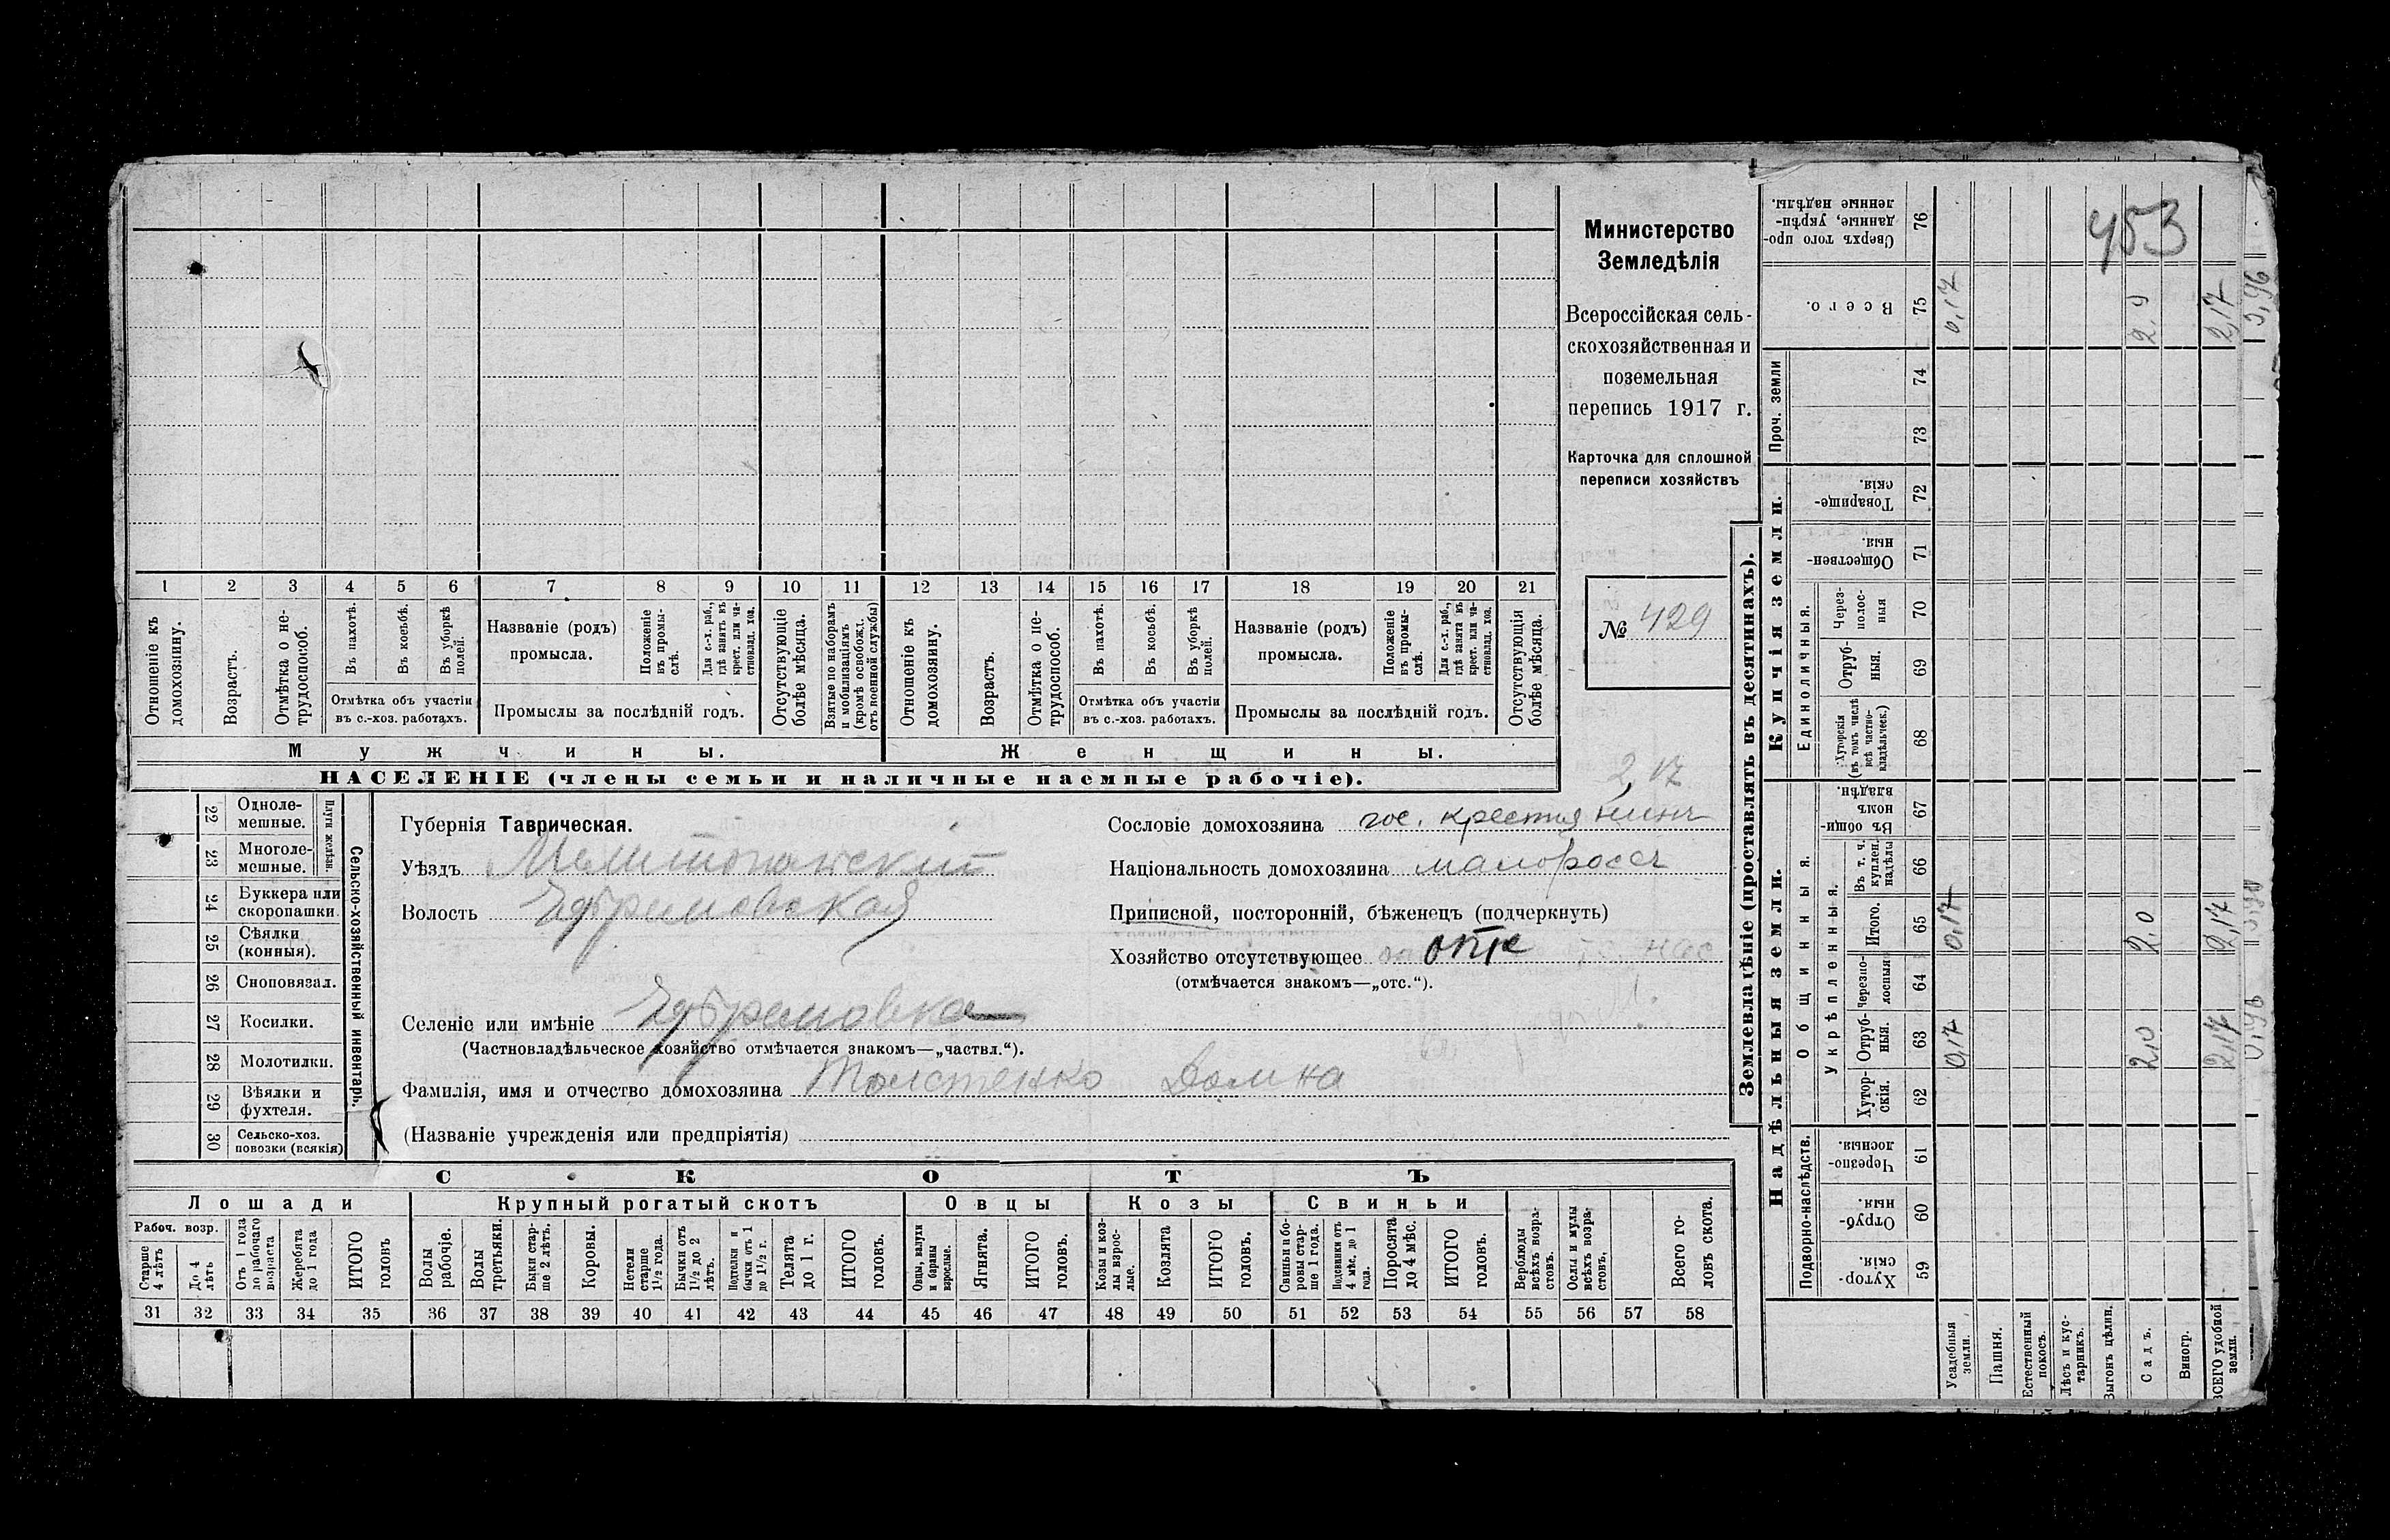 Министерство
Земледѣлія
Всероссійская сель-
скохозяйственная и
поземельная
перепись 1917 г.
Карточка для сплошной
переписи хозяйствъ
№ 429
453
1 2 3 4 5 6 7 8 9 10 11 12 13 14 15 16 17 18 19 20 21
Отношеніе къ домохозяину.
Возрастъ.
Отмѣтка о не-трудоспособ.
Въ пахотѣ.
Въ косьбѣ.
Въ уборкѣ полей.
Отмѣтка объ участіи
въ с.-хоз. работахъ.
Названіе (родъ)
промысла.
Положеніе въ промы-слѣ.
Для с.-х. раб., гдѣ занятъ въ крест. или ча-стновлад. хоз.
Промыслы за послѣдній годъ.
Отсутствующіе болѣе мѣсяца.
Взятые по наборамъ и мобилизаціямъ (кромѣ освобожд. отъ военной службы)
Отношеніе къ домохозяину.
Возрастъ.
Отмѣтка о не-трудоспособ.
Въ пахотѣ.
Въ косьбѣ.
Въ уборкѣ полей.
Отмѣтка объ участіи
въ с.-хоз. работахъ.
Названіе (родъ)
промысла.
Положеніе въ промы-слѣ.
Для с.-х. раб., гдѣ занята въ крест. или ча-стновлад. хоз.
Промыслы за послѣдній годъ.
Отсутствующія болѣе мѣсяца.
Мужчины. Женщины.
НАСЕЛЕНІЕ (члены семьи и наличные наемные рабочіе).
2,17
Сельско-хозяйственный инвентарь.
Плуги желѣзн.
22 Одноле-
мешные.
23 Многоле-
мешные.
24 Буккера или
скоропашки.
25 Сѣялки
(конныя).
26 Сноповязал.
27 Косилки.
28 Молотилки.
29 Вѣялки и
фухтеля.
30 Сельско-хоз.
повозки (всякія)
Губернія Таврическая.
Уѣздъ Мелитопольскій
Волость Ефремовская
Селеніе или имѣніе Ефремовка
(Частновладѣльческое хозяйство отмѣчается знакомъ—„частвл.“).
Фамилія, имя и отчество домохозяина Толстенко Домна
(Названіе учрежденія или предпріятія)
Сословіе домохозяина гос. крестьянинъ
Національность домохозяина малороссъ
Приписной, посторонній, бѣженецъ (подчеркнуть)
Хозяйство отсутствующее
(отмѣчается знакомъ—„отс.“).
СКОТЪ
Лошади Крупный рогатый скотъ Овцы Козы Свиньи
Рабоч. возр.
Старше 4 лѣтъ
До 4 лѣтъ
Отъ 1 года до рабочаго возраста
Жеребята до 1 года
ИТОГО головъ
Волы рабочіе.
Волы третьяки.
Быки стар-ше 2 лѣтъ.
Коровы.
Нетели старше 1½ года.
Бычки отъ 1½ до 2 лѣтъ.
Подтелки и бычки отъ 1 до 1½ г.
Телята до 1 г.
ИТОГО головъ.
Овцы, валухи и бараны взрослые.
Ягнята.
ИТОГО головъ.
Козы и коз-лы взрос-лые.
Козлята
ИТОГО головъ.
Свиньи и бо-ровы стар-ше 1 года.
Подсвинки отъ 4 мѣс. до 1 года.
Поросята до 4 мѣс.
ИТОГО головъ.
Верблюды всѣхъ возра-стовъ.
Ослы и мулы всѣхъ возра-стовъ.
Всего го-ловъ скота.
31 32 33 34 35 36 37 38 39 40 41 42 43 44 45 46 47 48 49 50 51 52 53 54 55 56 57 58
Землевладѣніе (проставлять въ десятинахъ).
Надѣльныя земли. Купчія земли. Проч. земли
Подворно-наслѣдств.
Общинныя.
Укрѣпленныя.
Единоличныя.
Хутор-скія. 59
Отруб-ныя. 60
Черезпо-лосныя. 61
Хутор-скія. 62
Отруб-ныя. 63
Черезпо-лосныя 64
Итого. 65
Въ т. ч. куплен. надѣлы 66
Въ общин-номъ владѣн. 67
Хуторскія (въ томъ числѣ всѣ частно-владѣльческ.) 68
Отруб-ныя. 69
Через-полос-ныя 70
Обществен-ныя. 71
Товарище-скія. 72
73
74
Всего. 75
Сверхъ того про-данные, укрѣп-ленные надѣлы. 76
Усадебныя земли. 0,17 0,17 0,17
Пашня.
Естественный покосъ.
Лѣсъ и кус-тарникъ.
Выгонъ цѣлин.
Садъ. 2,0 2,0
Виногр.
ВСЕГО удобной земли. 2,17 2,17 2,17